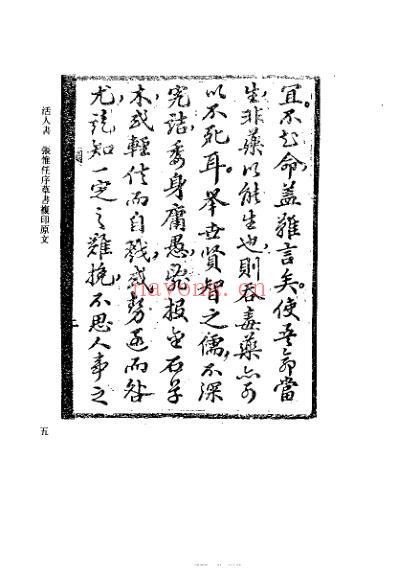 命盖難言矣使吾命當
生非藥以能生也則吞毒藥亦可
以不死耳舉世賢智之儒不深
究詰委身庸愚投金石草
木或輕信而自戕或而咎
尤詎知一定之難挽不思人事之
活人書 張惟任序草書複印原文
五